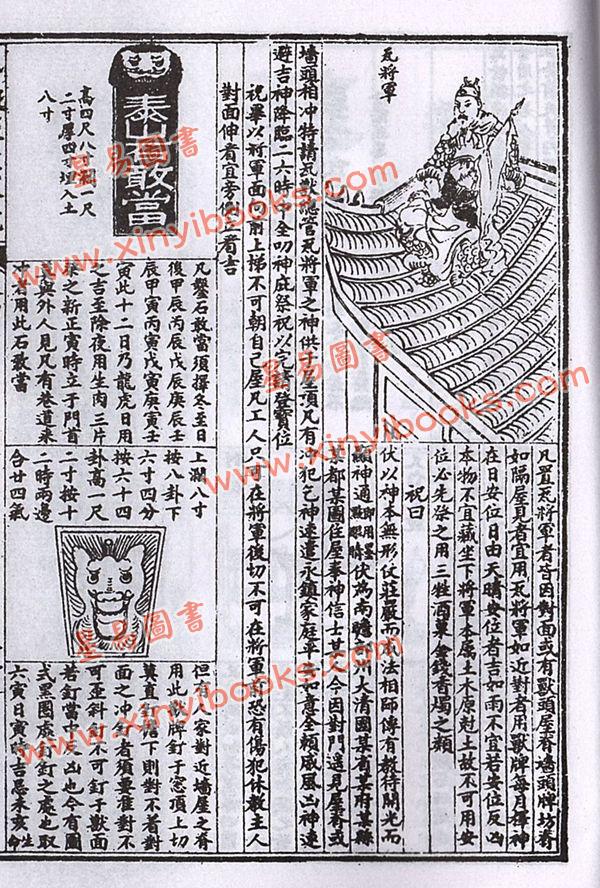 瓦將軍
凡置瓦將軍者皆因對面或有獸頭屋脊墻頭牌坊脊
如隔屋見者宜用瓦將軍如近對者用獸牌每月擇神
在日安位日由天晴安位者吉如雨不宜若安位反凶
本物不宜藏坐下將軍本属土木原尅土故不可用安
位必先祭之用三牲酒菓金錢香燭之類
祝曰
伏以神本無形仗莊嚴而成法相師傅有教待開光而
顯神通即用墨點眼時伏為南瞻部洲大清國某省某府某縣
某都某圖住屋奉神信士某人今因對門遠見屋脊或
墻頭相冲特請瓦獸總管瓦將軍之神供于屋頂凡有冲犯乞神速遣永鎮家庭平安如意全賴威風凶神速
避吉神降臨二六時中全叨神庇祭祝以完登寶位
祝畢以將軍面向前上梯不可朝自己屋凡工人只可在將軍後切不可在將軍前恐有傷犯休教主人
對面伸者宜旁側立看吉
泰山石敢當
高四尺八寸闊一尺
二寸厚四寸埋入土
八寸
凡鑿石敢當須擇冬至日
後甲辰丙辰戊辰庚辰壬
辰甲寅丙寅戊寅庚寅壬
寅此十二日乃龍虎日用
之吉至除夜用生肉三片
祭之新正寅時立于門首
莫與外人見凡有巷道來
冲者用此石敢當
上濶八寸
按八卦下
六寸四分
按六十四
卦高一尺
二寸按十
二時兩邊
合廿四氣
但有人家對近墻屋之脊
用此獸牌釘于窓頂上切
莫直釘檐下則對不着對
面之冲釘者須要准對不
可歪斜釘不可釘于獸面
若釘當中反凶也今有圖
式黑圈處釘釘之處也取
六寅日寅時吉忌未亥生命
星易圖書
www.xinyibooks.com
星易圖書
www.xinyibooks.com
星易圖書
www.xinyibooks.com
星易圖書
www.xinyibooks.com